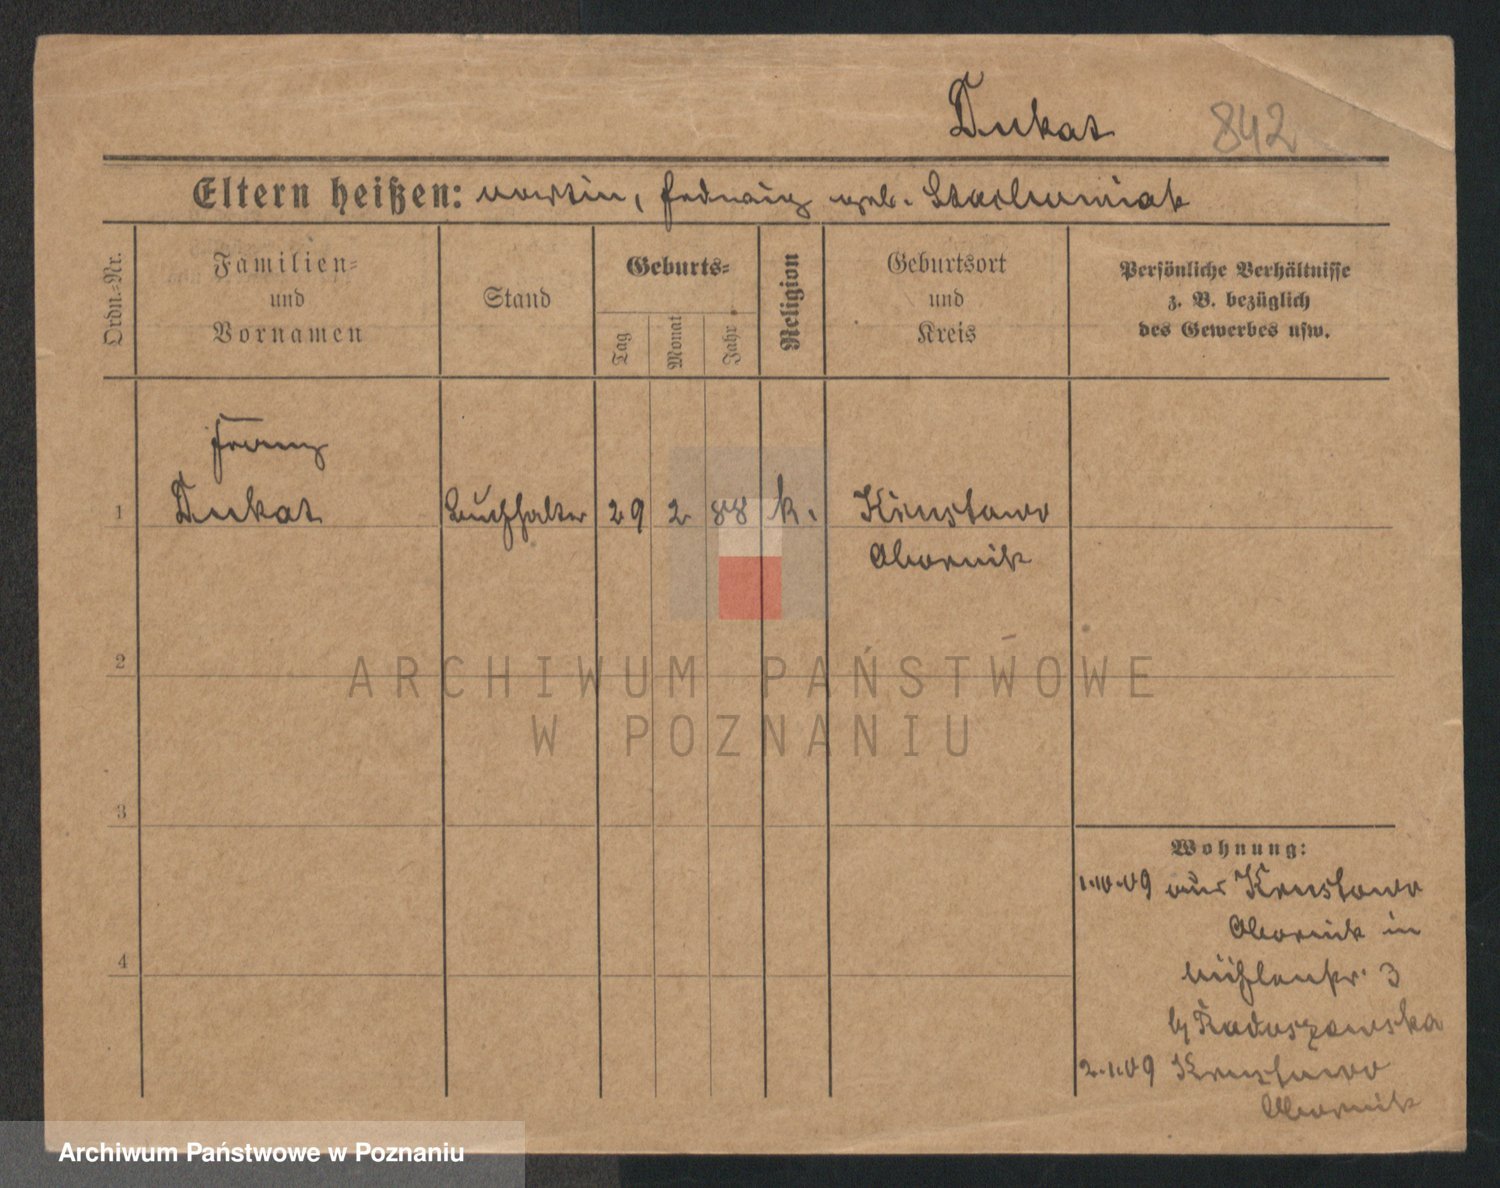 Dukat
842
Eltern heißen: Martin, Hedwig geb. Stachowiak
Ordn.-Nr.
Familien-
und
Vornamen
Stand
Geburts-
Tag
Monat
Jahr
Religion
Geburtsort
und
Kreis
Persönliche Verhältnisse
z. B. bezüglich
des Gewerbes usw.
Franz
1 Dukat Buchhalter 29 2 88 k.
Obornik
2
3
4
Wohnung:
1.10.09 aus
Obornik in
Mühlenstr. 3
b/ Radoszewska
2.1.09
Obornik
ARCHIWUM PAŃSTWOWE
W POZNANIU
Archiwum Państwowe w Poznaniu